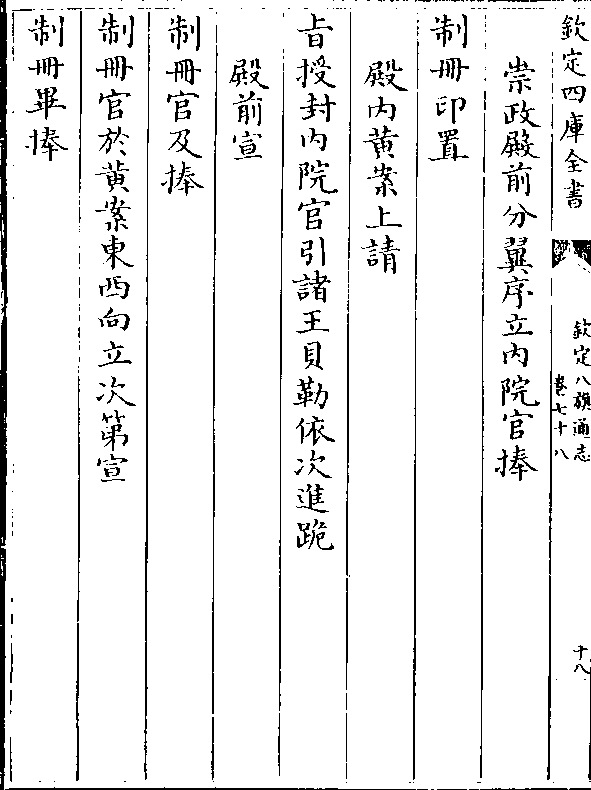 欽定四庫全書
欽定八旗通志
卷七十八
十八
崇政殿前分翼序立内院官捧
制冊印置
殿内黄案上請
旨授封内院官引諸王貝勒依次進跪
殿前宣
制冊官及捧
制冊官於黄案東西向立次第宣
制冊畢捧